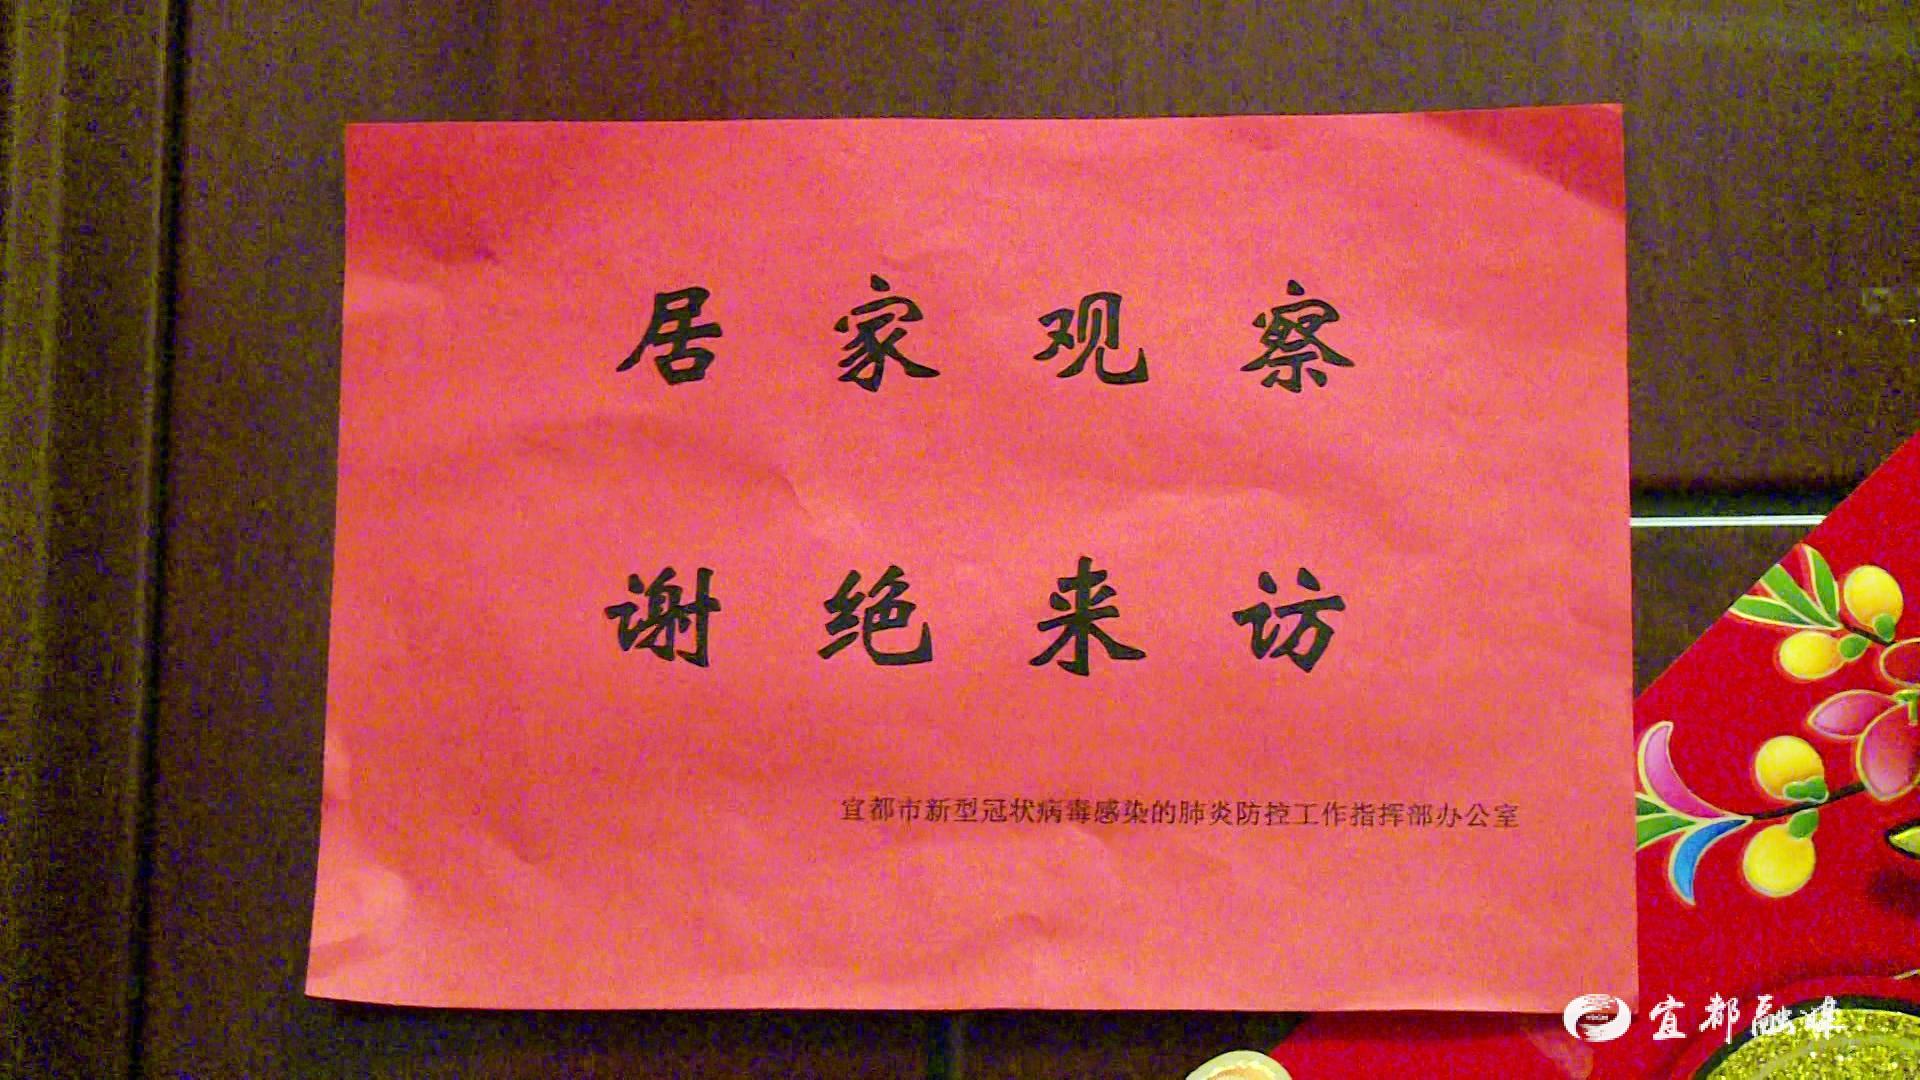 居家观察
谢绝来访
宜都市新型冠状病毒感染的肺炎防控工作指挥部办公室
宜都融媒